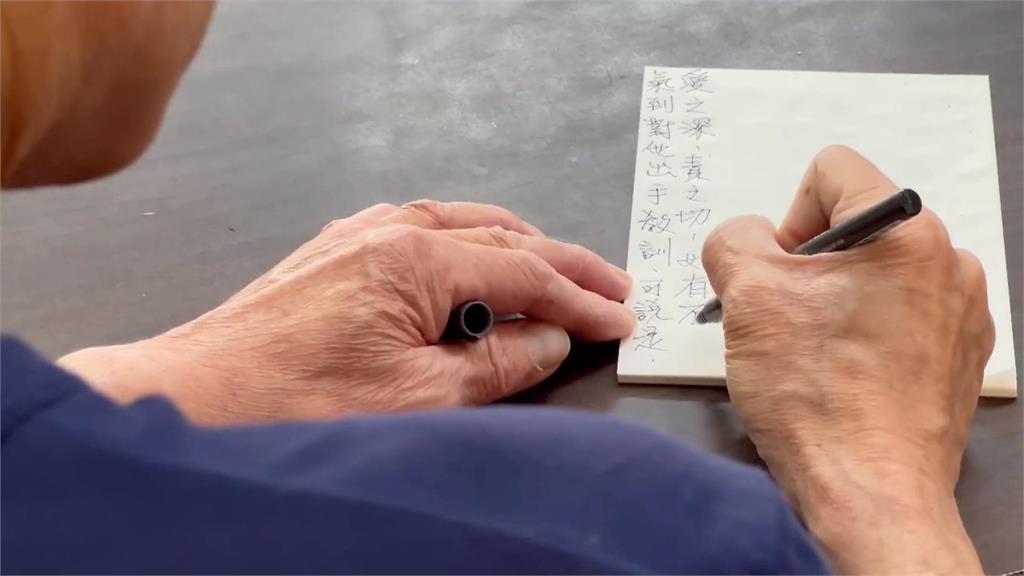 氣到對他出手教訓、可說是.
愛之深、責之切,有不